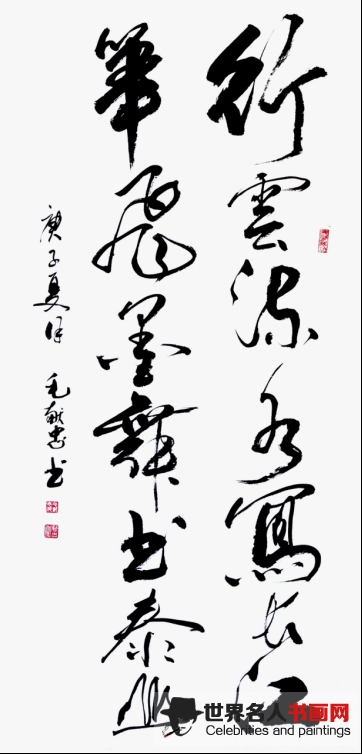 行雲流水寫长江
筆飛墨舞书泰山
庚子夏 毛献忠书
世界名人书画网
Celebrities and paintings